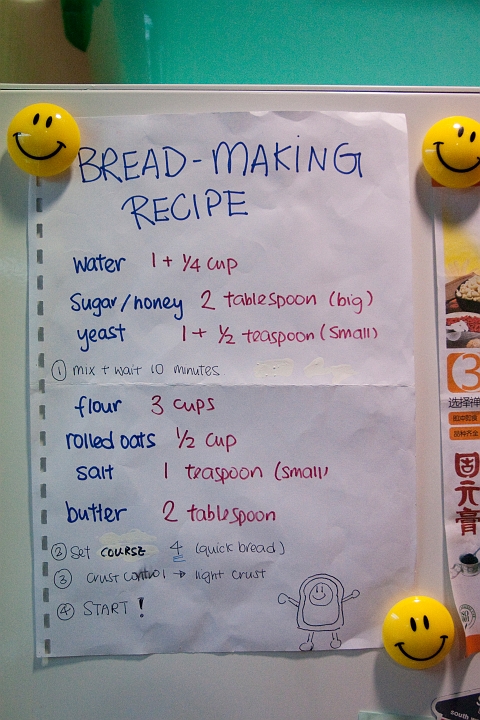 BREAD-MAKING
RECIPE
water 1 + 1/4 cup
Sugar/honey 2 tablespoon (big)
yeast 1 + 1/2 teaspoon (small)
① mix + wait 10 minutes
flour 3 cups
rolled oats 1/2 cup
salt 1 teaspoon (small)
butter 2 tablespoon
② Set COURSE 4 (quick bread)
③ crust control → light crust
④ START!
3
选择禅
固元膏
south